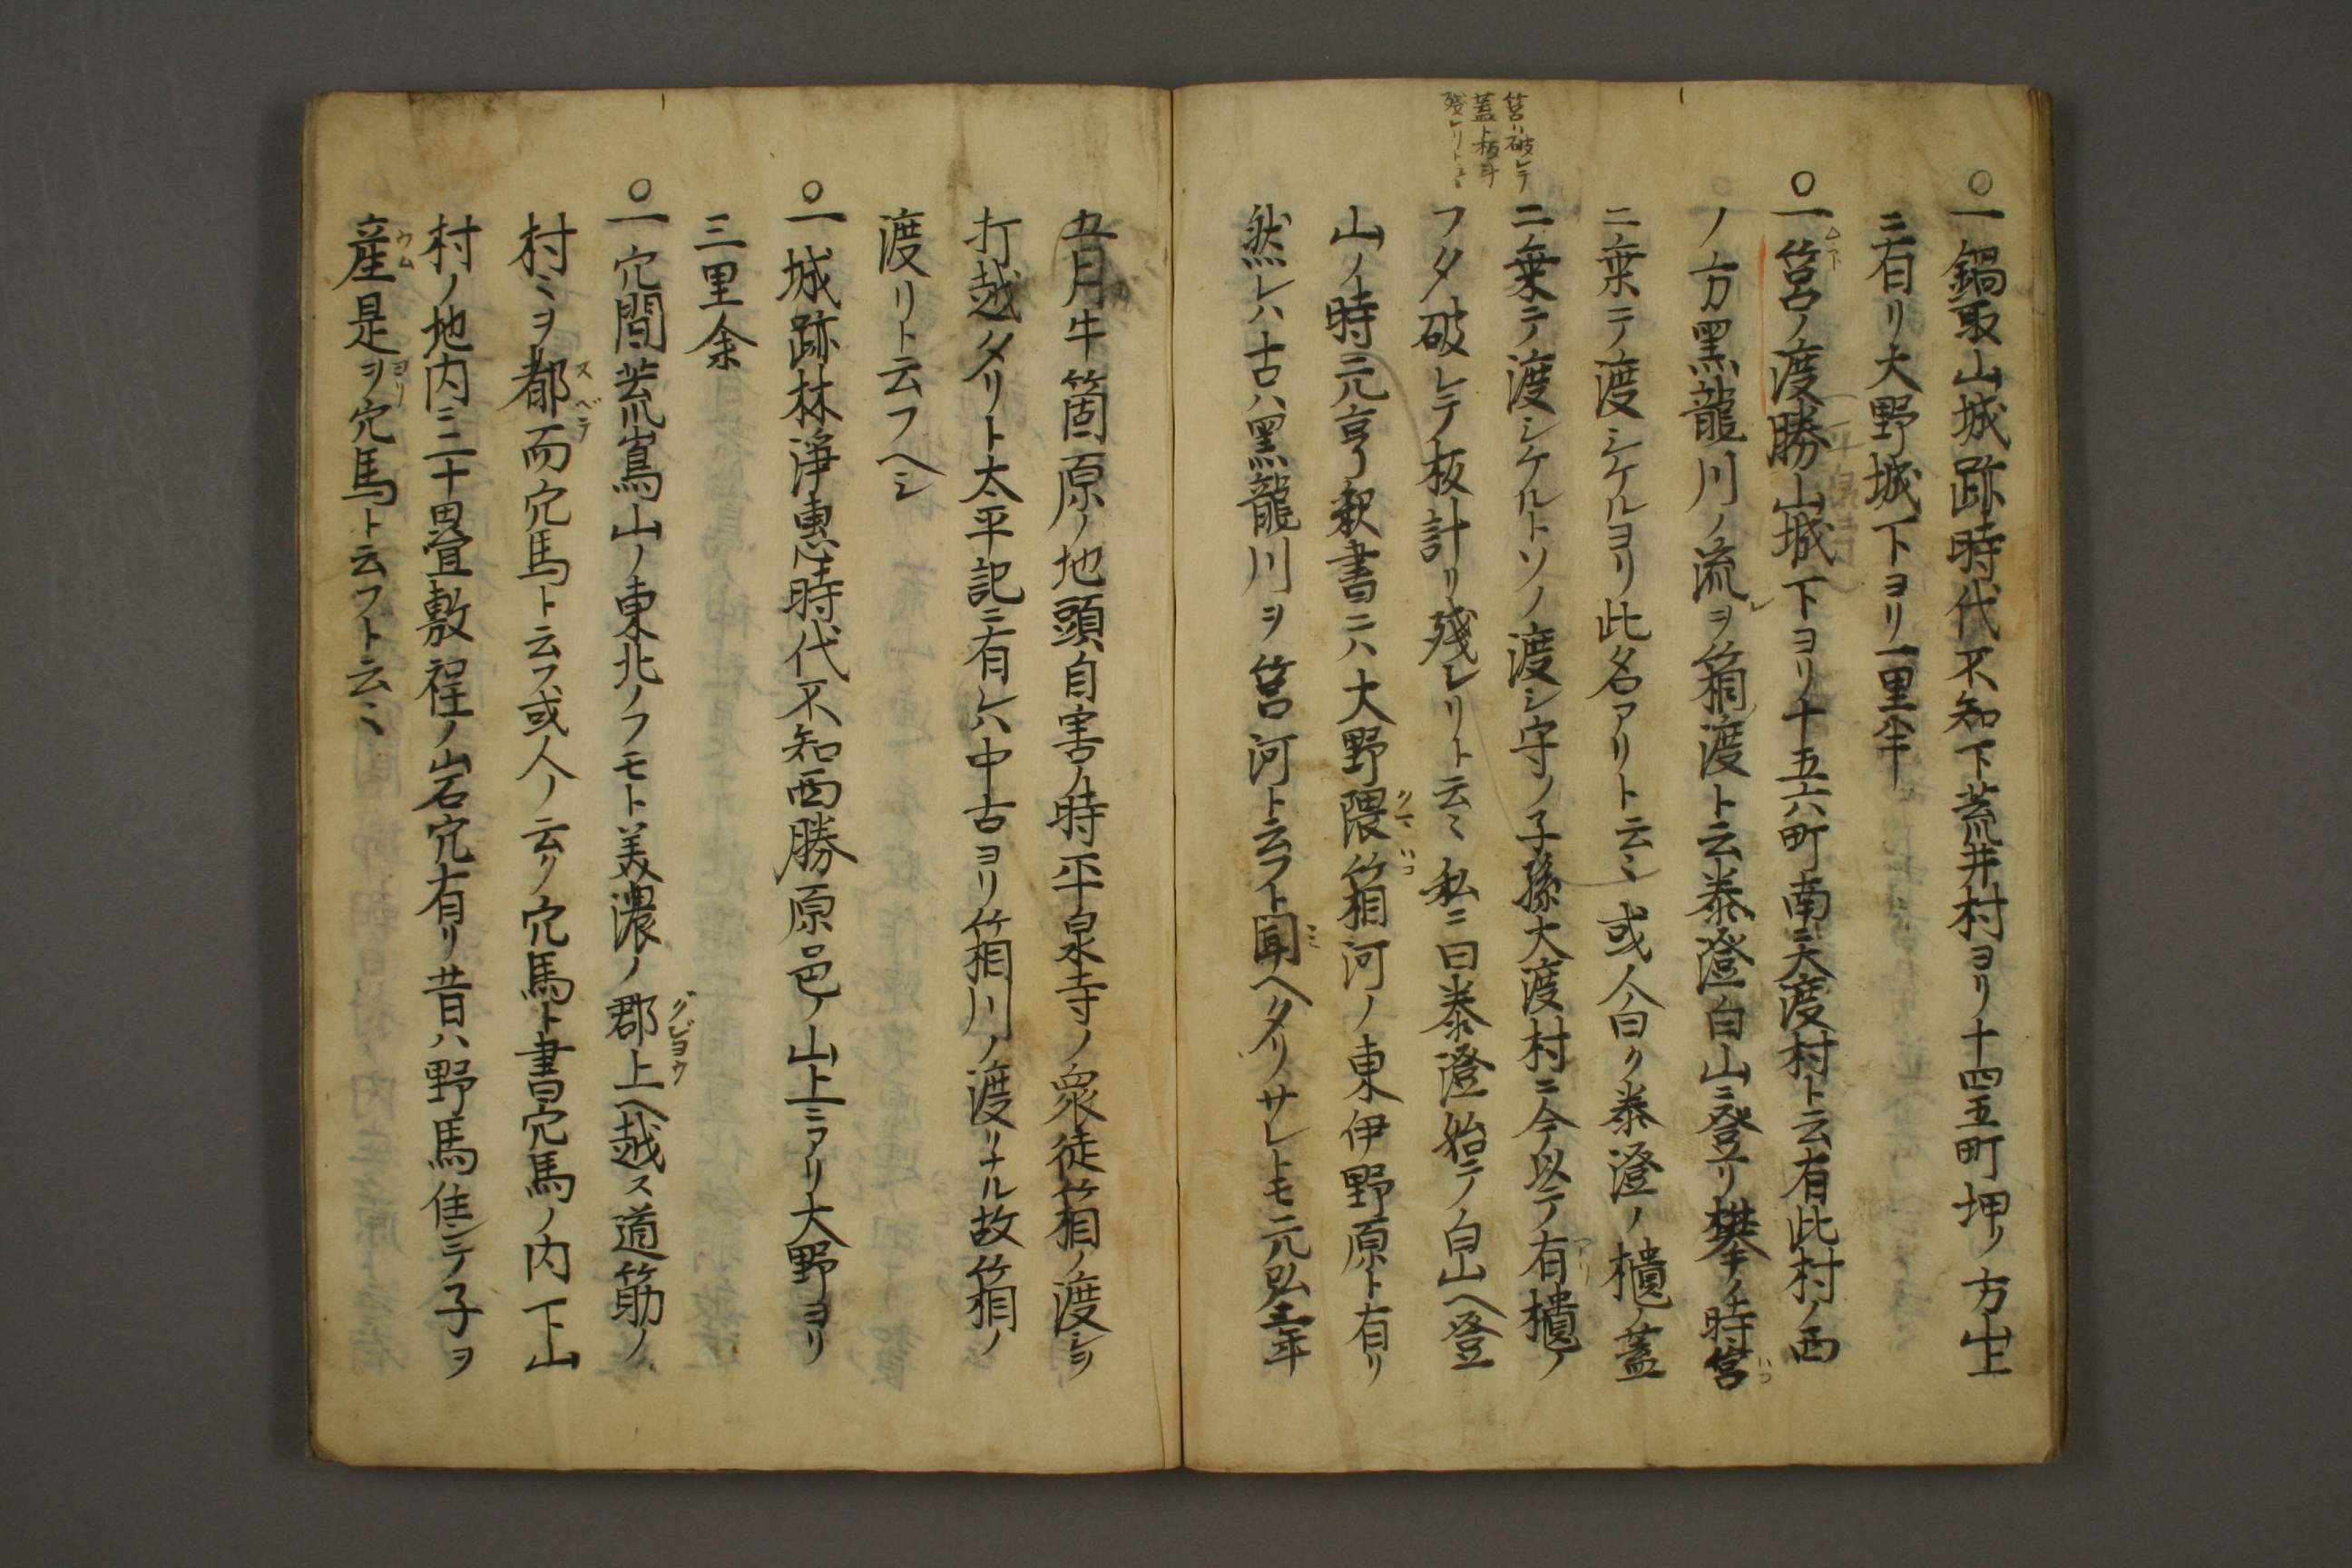 ○一鍋取山城跡時代不知下荒井村ヨリ十四五町坤ノ方山上
ニ有リ大野城下ヨリ一里半
○一筥ノ渡勝山城下ヨリ十五六町南ニ大渡村ト云有此村ノ西
ノ方黒龍川ノ流レヲ箱渡ト云泰澄白山ニ登リ攀ノ時筥
ニ乗テ渡シケルヨリ此名アリト云ミ或人曰ク泰澄ノ櫃ノ蓋
ニ乗テ渡シケルトソノ渡シ守ノ子孫大渡村ニ今以テ有櫃ノ
フタ破レテ板計リ残レリト云ミ私ニ曰泰澄始テノ白山ヘ登
山ノ時元亨釈書ニハ大野隈箱河ノ東伊野原ト有リ
然レハ古ハ黒龍川ヲ筥河ト云フト聞ヘタリサレトモ元弘三年
筥ハ破レテ
蓋ト板斗
残レリト云ミ
五月牛箇原ノ地頭自害ノ時平泉寺ノ衆徒箱ノ渡シヲ
打越タリト太平記ニ有レハ中古ヨリ箱川ノ渡リナル故箱ノ
渡リト云フヘシ
○一城跡林浄惠時代不知西勝原邑ノ山上ニアリ大野ヨリ
三里余
○一穴間荒嶌山ノ東北ノフモト美濃ノ郡上ヘ越ス道筋ノ
村ミヲ都而穴馬ト云フ或人ノ云ク穴馬ト書穴馬ノ内下山
村ノ地内ニ二十畳敷程ノ山石穴有リ昔ハ野馬住テ子ヲ
産是ヲ穴馬ト云フト云ミ